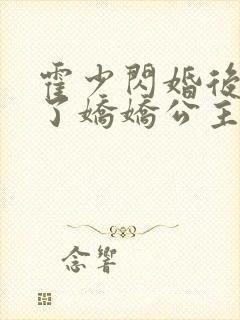 霍少閃婚後
了嬌嬌公主
念響